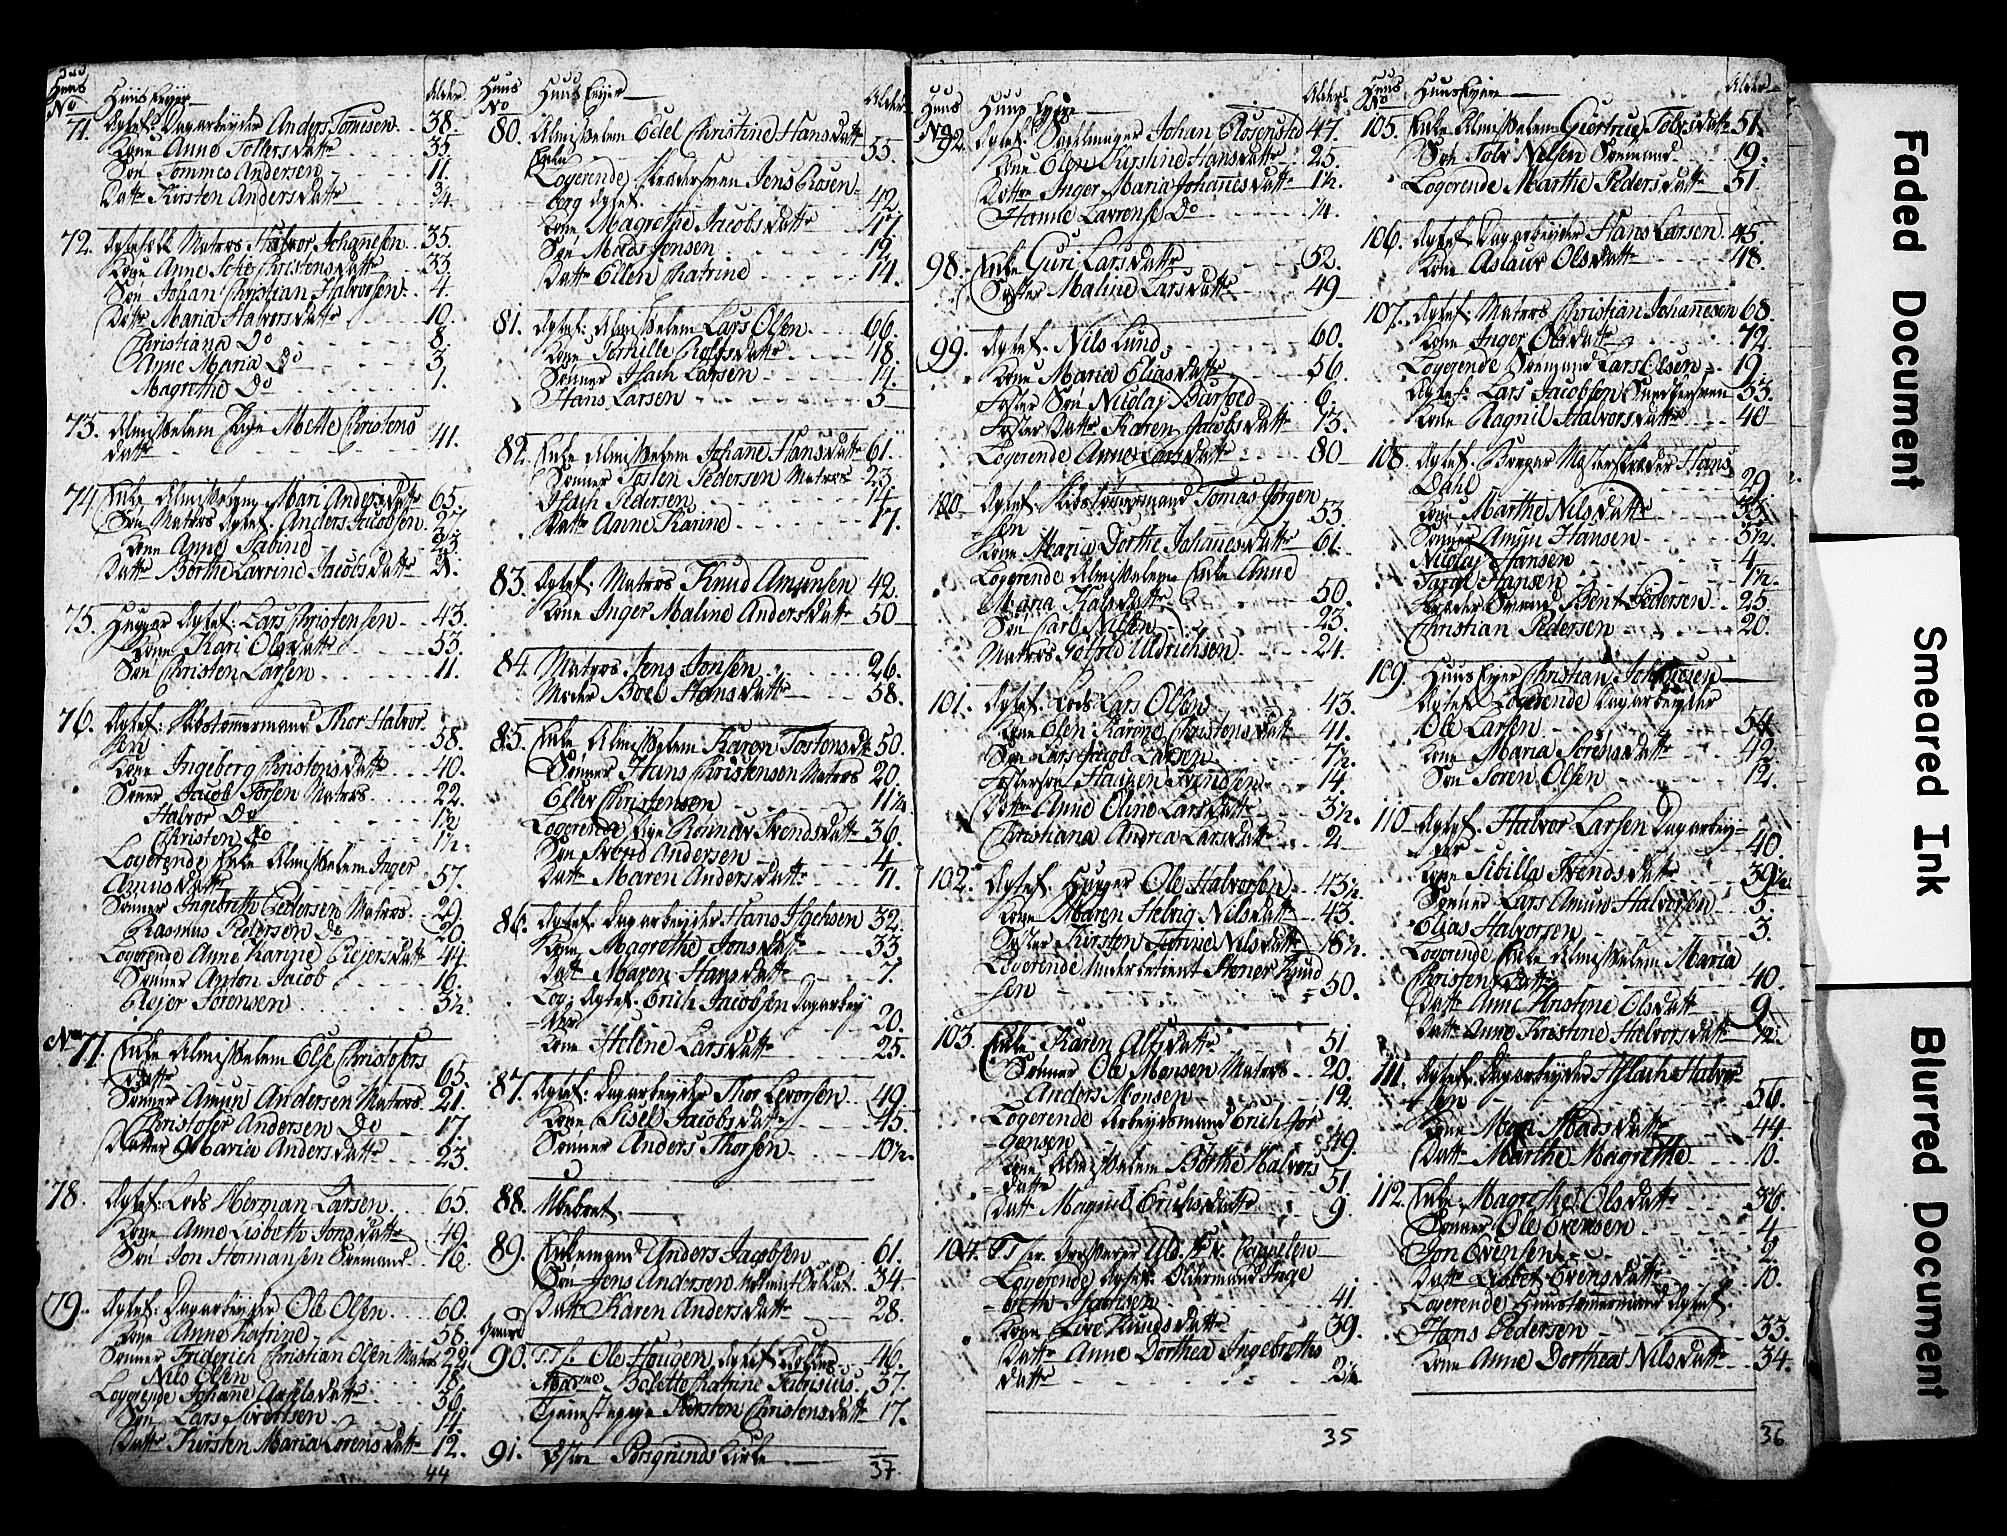 Huus No Huus Eyer Alder
71. Ægtef: Dagarbeyder Anders Tomesen 38.
Kone Anne Tollers datter 35
Søn Tommes Andersen 11.
Datter Kirsten Anders datter 3/4.
72. Ægtefolk Matros Halvor Johannesen 35.
Kone Anne Christens datter 33.
Søn Johan Christian Halvorsen 4
Datter Maria Halvors datter 10.
Christiana Do 8.
Anne Maria Do 3.
Magrethe Do 1.
73. Almisselem Pige Mette Christens
datter 41.
74 Enke Almisselem Mari Anders datter 65.
Søn Matros Ægtef. Anders Jacobsen 27
Kone Anne Sabine 23.
Datter Borthe Lavrine Jacobs datter 21.
75. Hugger Ægtef: Lars Christensen 43.
Kone Kari Ols datter 53.
Søn Christen Larsen 11.
76. Ægtef: Skibstømmermand Thor Halvor-
sen 58.
Kone Ingeberg Christens datter 40.
Sønner Jacob Torsen Matros 22.
Halvor Do
Christen Do 1 1/2.
Logerende Enke Almisselem Inger
Amus datter 57.
Sønner Ingebrith Pedersen Matros 29.
Rasmus Pedersen Do 20.
Logerende Anne Karine Reyers datter 44.
Sønner Anton Jacob 16.
Rejer Sørensen 3 1/2.
No 77. Enke Almisselem Else Christofers
datter 65.
Sønner Amun Andersen Matros 21.
Christofer Andersen Do 17
Datter Maria Anders datter 23.
78. Ægtef: Lods Herman Larsen 65.
Kone Anne Lisbeth Jons datter 49.
Søn Jon Hermansen Søemand 16.
79. Ægtef: Dagarbeyder Ole Olsen 60.
Kone Anne Katrine 58.
Sønner Friderich Christian Olsen Matros 22
Nils Olsen 18.
Logerende Johane datter 36.
Søn Lars Sivertsen 14.
Datter Kirsten Maria Lorens datter 12.
44
Huus No Huus Eyer Alder
80. Almisselem Edel Christine Hans datter
Enke 55.
Logerende Skredersvend Jens Rosen-
berg Ægtef. 42.
Kone Magrethe Jacobs datter 47.
Søn Mads Jensen 19.
Datter Ellen Chatrine 14.
81. Ægtef: Almisselem Lars Olsen 66.
Kone Pernille Rolfs datter 48.
Sønner Isach Larsen 14.
Hans Larsen 5
82. Enke Almisselem Johane Hans datter 61.
Sønner Tosten Pedersen Matros 23.
Isach Pedersen 14.
Datter Anne Karine 17.
83. Ægtef: Matros Knud Amunsen 42.
Kone Inger Maline Anders datter 50
84. Matros Jens Jonsen 26.
Moder Boel Hans datter 58.
85. Enke Almisselem Karen Tostens dt 50.
Sønner Hans Christensen Matros 20.
Eller Christensen 11 1/2
Logerende Pige Rønnav Svends datter 36.
Søn Svend Andersen 4
Datter Maren Anders datter 11.
86. Ægtef. Dagarbeyder Hans Isachsen 32.
Kone Magrethe Jons datter 33.
Datt Maren Hans datter 7.
Log: Ægtef. Erich Jacobsen Dagarbey
der 20.
Kone Helene Lars datter 25.
87. Ægtef: Dagarbeyder Thor Levorsen 49.
Kone Sisel Jacobs datter 45.
Sønner Anders Thorsen 10 1/2.
88. Ubeboet.
89. Enkemand Anders Jacobsen 61.
Søn Jens Andersen Soldat 34
Datter Karen Anders datter 28.
Gaard
90. Ole Hougen Ægtef. 46.
Madme Bolette Katrine Fabrisius 37.
Tjenestepige Kirsten Christens datter 17.
91. Østre Porsgrunds Kirke
37.
Huus No Huus Eyere Alder
92. Ægtef. Johan Rosensted 47.
Kone Olene Kirstine Hans datter 25.
Datter Inger Maria Johannes datter 1 1/2.
Hanne Lavrense Do 1/4.
98. Enke Guri Lars datter 52.
Søster Maline Lars datter 49
99. Ægtef. Nils Lund 60.
Kone Maria Elias datter 56.
Foster Søn Nicolaj Barfoed 6.
Foster Datter Karen Jacobs datter 13.
Logerende Anne Lars datter 80
100 Ægtef. Skibstømmermand Tomas Jørgen
sen 53.
Kone Maria Dorthe Johannes datter 61.
Logerende Almisselem Enke Anne
Maria datter 50.
Søn Carl Nilsen 23.
Matros Uldrichsen 24.
101. Ægtef. Lods Lars Olsen 43.
Kone Olen Karine Christens datter 41.
Søn Lars Jacob Larsen 7 1/2.
Fostersøn Svendsen 14
Datter Anne Oline Lars datter 3 1/2.
Christiana Andrea Lars datter 2
102. Ægtef. Hugger Ole Halvorsen 43 1/2.
Kone Maren Helvig Nils datter 43.
Søster Kirsten Torine Nils datter 18 1/2.
Logerende Underbetient Stener Knud
sen 50.
103. Enke Karen Alfs datter 51.
Sønner Ole Monsen Matros 20.
Anders Monsen 12.
Logerende Arbeydsmand Erich Jør
gensen 49.
Kone Almisselem Borthe Halvors
datter 51.
Datter Magnil Erichs datter 9.
104. v. Cappelen
Logerende Ægtef. Oldermand Inge
breth Isachsen 41.
Kone Live Knuds datter 39.
Datter Anne Dorthea Ingebreths
datter
35
Huus No Huus Eyere Alder
105. Enke Almisselem Giertrue Tobes datter 51.
Søn Tobe Nilsen Søemand 19.
Logerende Marthe Peders datter 51.
106. Ægtef. Dagarbeyder Hans Larsen 45.
Kone Aslaug Ols datter 48.
107. Ægtef. Matros Christian Johannesen 68.
Kone Inger Ols datter 72.
Logerende Søemand Lars Olsen 19.
Ægtef. Lars Jacobsen 53.
Kone Ragnil Halvors datter 40
108. Ægtef. Borger Hans
Dahl 29.
Kone Marthe Nils datter
Sønner Amun Hansen 5 1/2.
Nicolaj Hansen 4
Taral Hansen 1 1/2.
Skræder Svend Bent Pedersen 25.
Christian Pedersen 20.
109. Huus Eyer Christian Johannesen
Ægtef. Logerende Dagarbeyder
Ole Larsen 54
Kone Maria Sørens datter 49.
Søn Soren Olsen 12.
110 Ægtef. Halvor Larsen Dagarbey-
der 40.
Kone Sibilla Svends datter 39 1/2.
Sønner Lars Amun Halvorsen 5.
Elias Halvorsen 3.
Logerende Enke Almisselem Maria
Christens datter 40.
Datter Anne Kirstine Ols datter 9.
Datter Anne Kirstine Halvors datter
111. Ægtef. Dagarbeyder Aslach Halvor-
sen 56.
Kone Mari Mads datter 44.
Datter Marthe Magrethe 10.
112. Enke Magrethe Ols datter 36.
Sønner Ole Evensen 4
Jon Evensen 2.
Datter Lisbet Evens datter 10.
Logerende Huustømmermand Ægtef.
Hans Pedersen 33.
Kone Anne Dorthea Nils datter 34.
36
Faded Document
Smeared Ink
Blurred Document